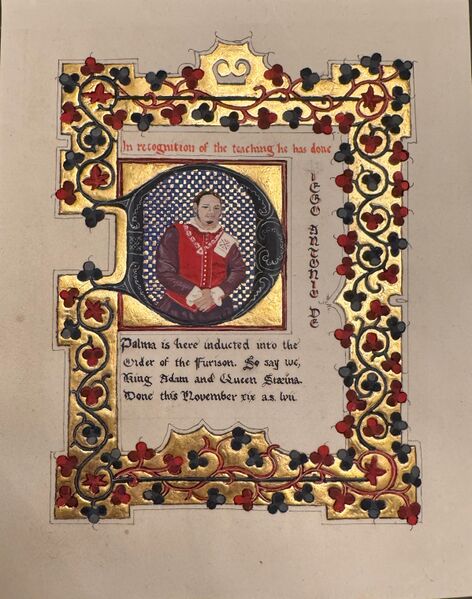 In recognition of the teaching he has done
DIEGO ANTONIO DE
Palma is here inducted into the
Order of the Furison. So say we,
King Adam and Queen Stæina.
Done this November xix a.s. lvii.